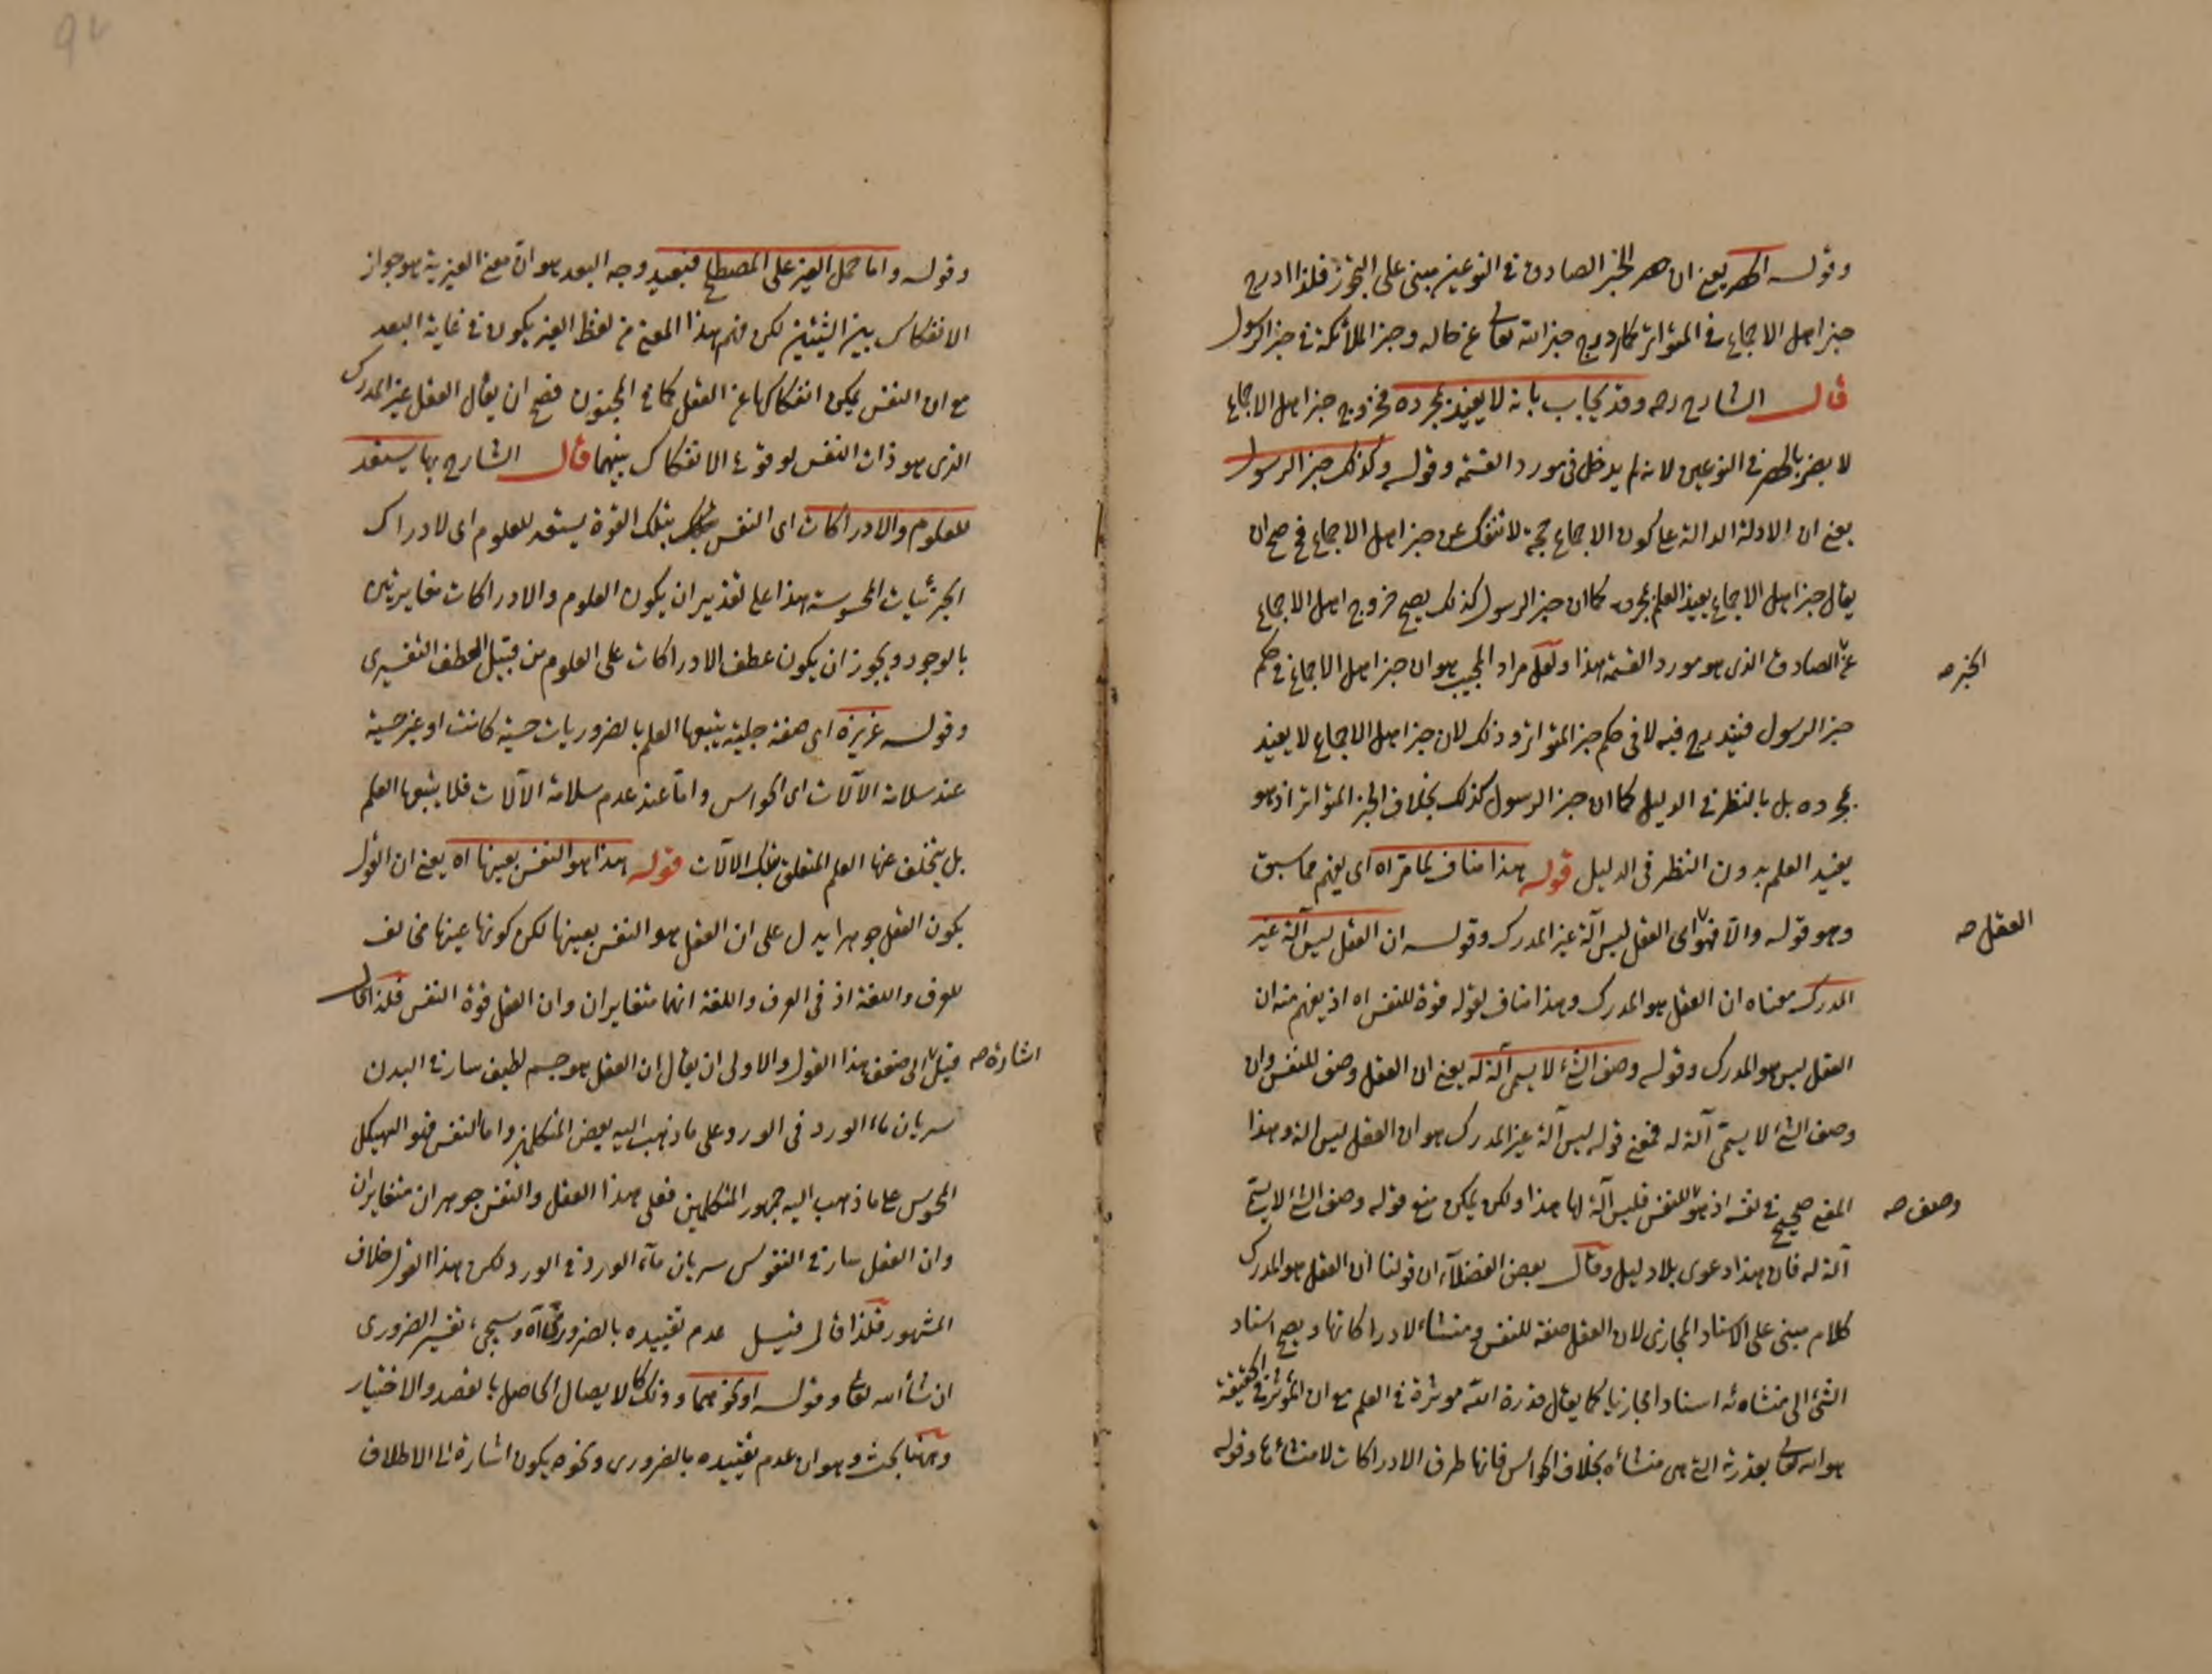 وقوله الحصر يعنى ان حصر الخبر الصادق فى النوعين مبنى على التجوز فلذا ادرج
خبر اهل الاجماع فى المتواتر كما درج خبر الله تعالى عن حاله وخبر الملائكة فى خبر الرسول
قال الشارح رحه وقد يجاب بانه لا يفيد بمجرده فخروج خبر اهل الاجماع
لا يضر بالحصر فى النوعين لانه لم يدخل فى مورد القسمة وقوله وكذلك خبر الرسول
يعنى ان الادلة الدالة على كون الاجماع حجة لا تنفك عن خبر اهل الاجماع فح صح ان
يقال خبر اهل الاجماع يفيد العلم بمجرده كما ان خبر الرسول كذلك يصح خروج اهل الاجماع
عن الصادق الذى هو مورد القسمة هذا ولعل مراد المجيب هو ان خبر اهل الاجماع فى حكم
الخبر صح
خبر الرسول فيندرج فيه لا فى حكم خبر المتواتر وذلك لان خبر اهل الاجماع لا يفيد
بمجرده بل بالنظر فى الدليل كما ان خبر الرسول كذلك بخلاف الخبر المتواتر اذ هو
يفيد العلم بدون النظر فى الدليل قوله هذا مناف لما مر اه اى يفهم مما سبق
وهو قوله والا فهو اى العقل ليس آلة غير المدرك وقوله ان العقل ليس آلة غير
العقل صح
المدرك معناه ان العقل هو المدرك وهذا مناف لقوله قوة للنفس اه اذ يفهم منه ان
العقل ليس هو المدرك وقوله وصف الشئ لا يسمى آلة له يعنى ان العقل وصف للنفس وان
وصف الشئ لا يسمى آلة له فمعنى قوله ليس آلة غير المدرك هو ان العقل ليس الة وهذا
المعنى صحيح فى نفسه اذ هو للنفس فليس آلة لها هذا ولكن يمكن منع قوله وصف الشئ لا يسمى
وصف صح
آلة له فان هذا دعوى بلا دليل وقال بعض الفضلاء ان قولنا ان العقل هو المدرك
كلام مبنى على الاسناد المجازى لان العقل صفة للنفس ومنشاء لادراكاتها ويصح اسناد
الشئ الى منشائه اسنادا مجازيا كما يقال قدرة الله موثرة فى العلم مع ان المؤثر فى الحقيقة
هو الله تعالى بقدرته التى هى منشأه بخلاف الحواس فانها طرق الادراكات لا منشاءها وقوله
وقوله واما حمل الغير على المصطلح فبعيد وجه البعد هو ان معنى الغيرية هو جواز
الانفكاك بين الشيئين لكن فهم هذا المعنى من لفظ الغير يكون فى غاية البعد
مع ان النفس يمكن انفكاكها عن العقل كما فى المجنون فصح ان يقال العقل غير المدرك
الذى هو ذات النفس لوقوع الانفكاك بينهما قال الشارح بها يستعد
للعلوم والادراكات اى النفس بتلك القوة يستعد للعلوم اى لادراك
الجزئيات المحسوسة هذا على تقدير ان يكون العلوم والادراكات متغايرتين
بالوجود ويجوز ان يكون عطف الادراكات على العلوم من قبيل العطف التفسيرى
وقوله غريزة اى صفة جبلية يتبعها العلم بالضروريات حسية كانت او غير حسية
عند سلامة الآلات اى الحواس واما عند عدم سلامة الآلات فلا يتبعها العلم
بل يتخلف عنها العلم المتعلق بتلك الآلات قوله هذا هو النفس بعينها اه يعنى ان القول
بكون العقل جوهرا يدل على ان العقل هو النفس بعينها لكن كونها عينها مخالف
للعرف واللغة اذ فى العرف واللغة انهما متغايران وان العقل قوة النفس فلذا قال
قيل الى ضعف هذا القول والاولى ان يقال ان العقل هو جسم لطيف سار فى البدن
اشارة صح
سريان ماء الورد فى الورد على ما ذهب اليه بعض المتكلمين واما النفس فهو الهيكل
المحسوس على ما ذهب اليه جمهور المتكلمين فعلى هذا العقل والنفس جوهران متغايران
وان العقل سار فى النفوس سريان مآء الورد فى الورد لكن هذا القول خلاف
المشهور فلذا قال قيل عدم تقييده بالضرورى اه وسيجئ تفسير الضرورى
ان شأ الله تعالى وقوله او نحوهما وذلك كما لا يصال الحاصل بالقصد والاختيار
وههنا بحث وهو ان عدم تقييده بالضرورى ونحوه يكون اشارة الى الاطلاق